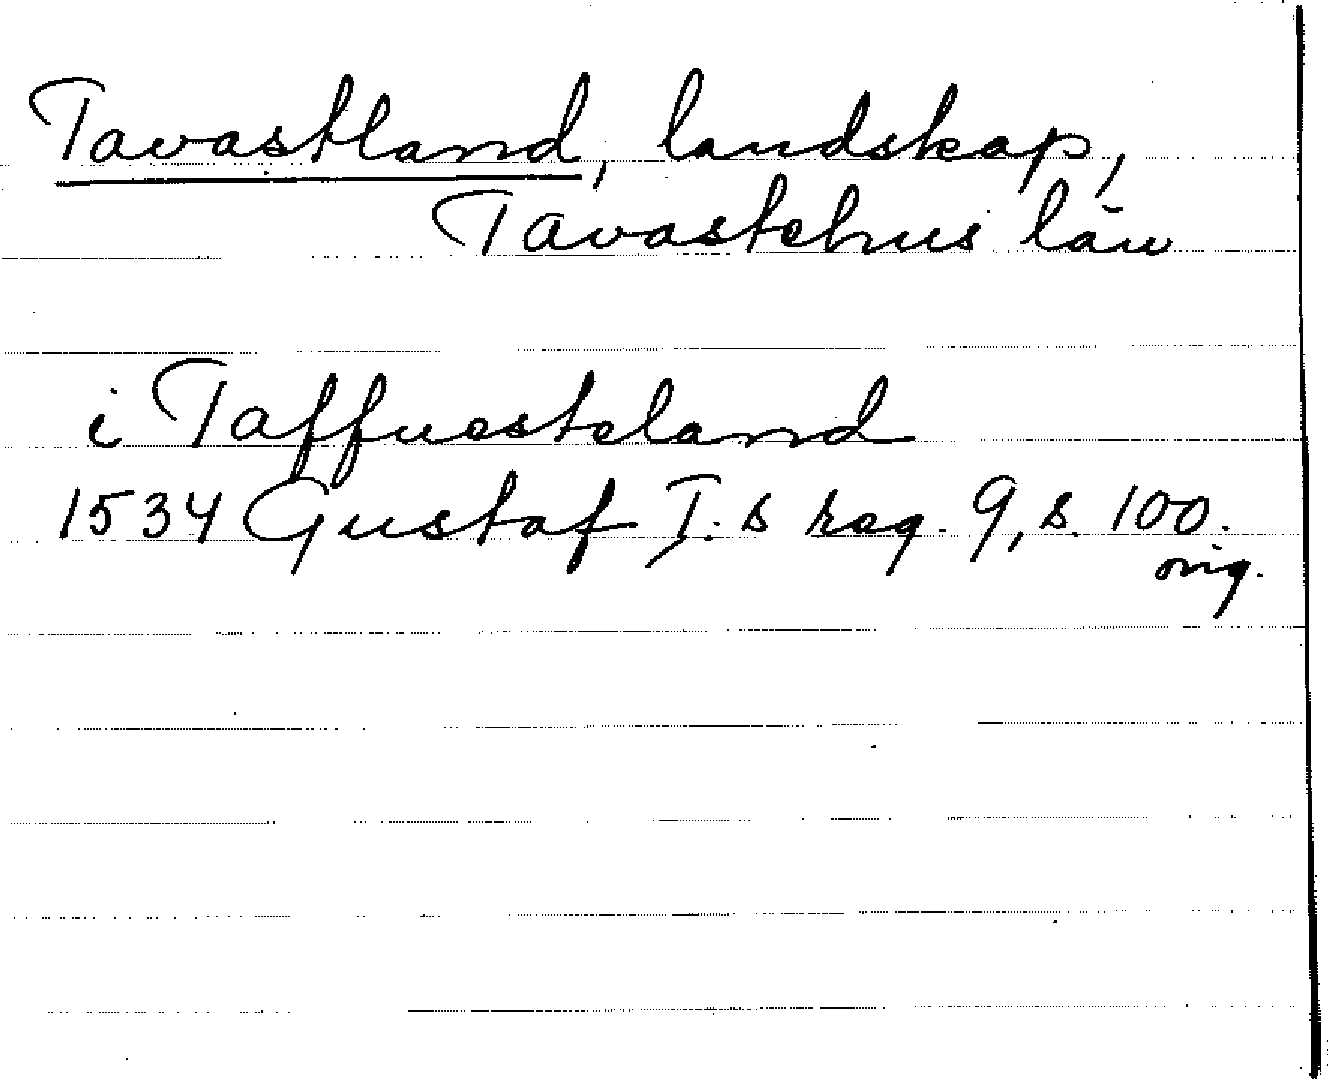 Tavastland, landskap,
Tavastehus län
i Taffuesteland
1534 Gustaf I.s reg. 9, s. 100.
orig.